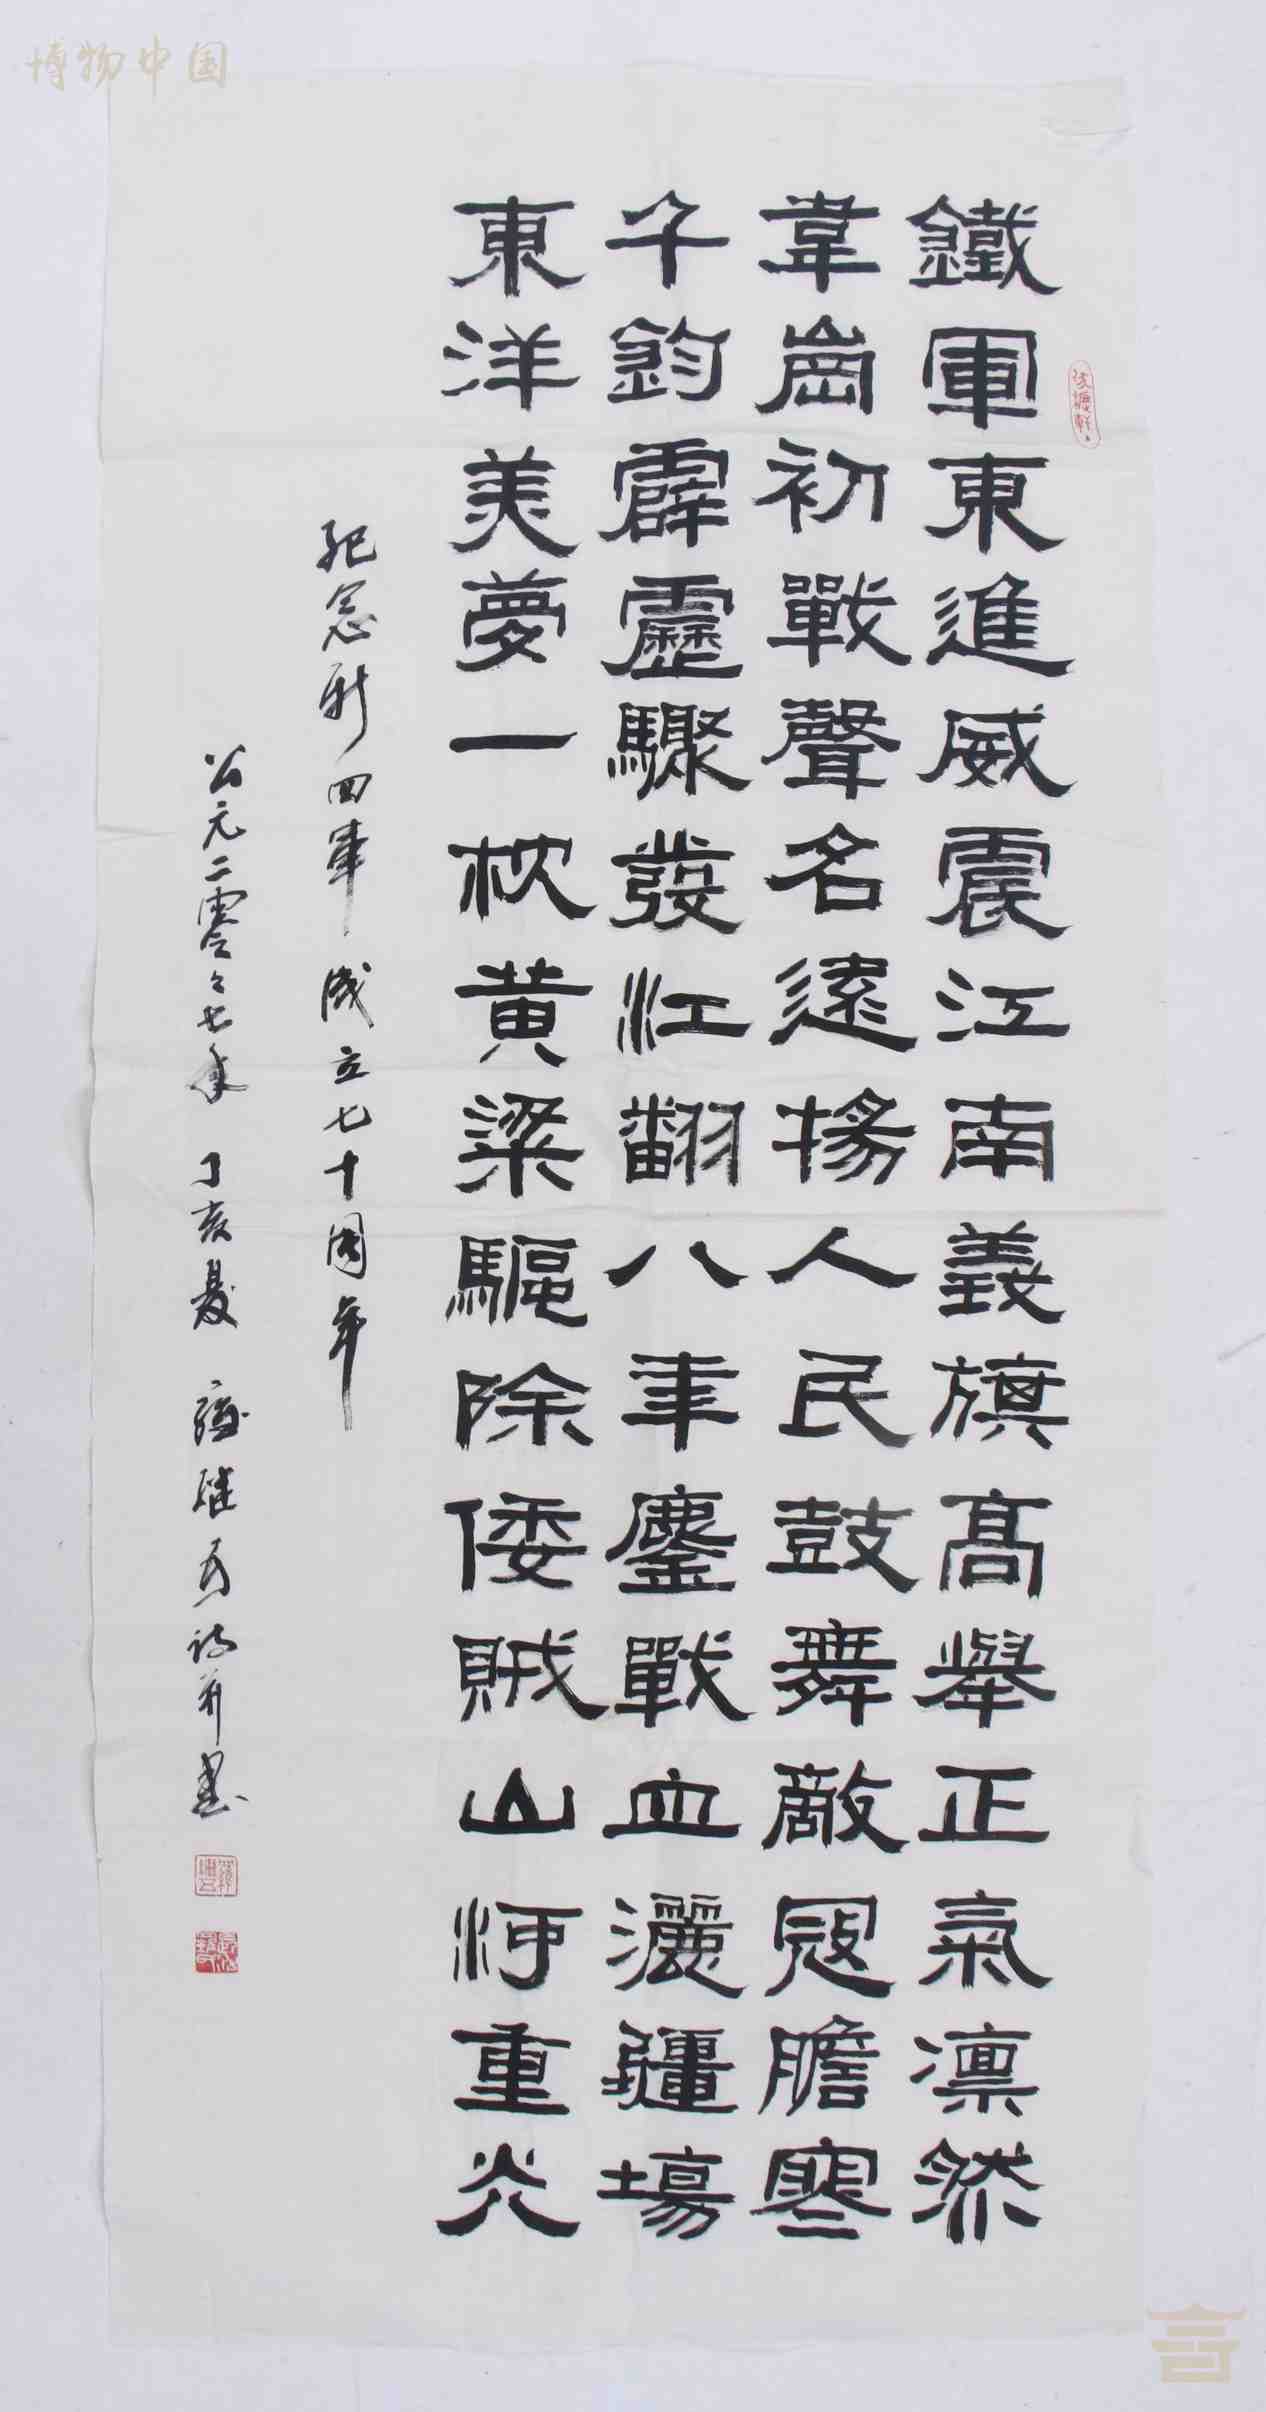 博物中国
鐵軍東進威震江南義旗高舉正氣凛然
韋崗初戰聲名遠揚人民鼓舞敵寇膽寒
千鈞霹靂驟發江翻八年鏖戰血灑疆場
東洋美夢一枕黄粱驅除倭賊山河重光
紀念新四軍成立七十周年
公元二零零七年 丁亥夏 繼 詩并書